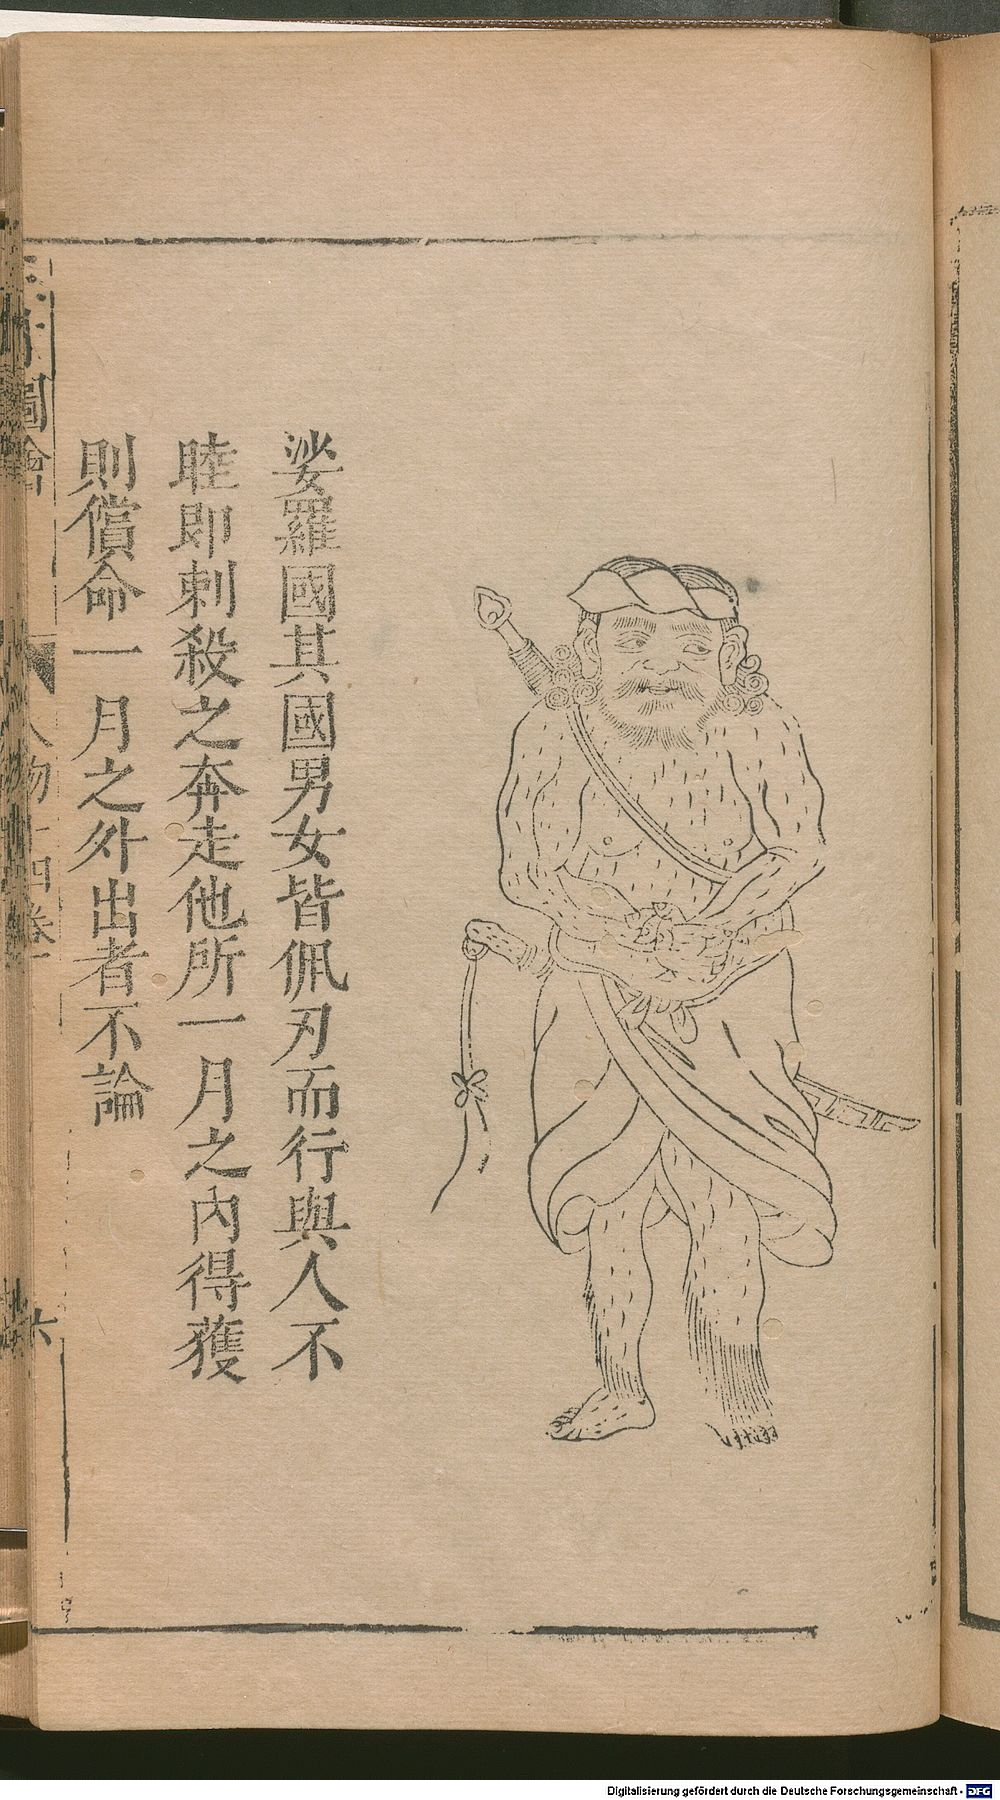 娑羅國其國男女皆佩刃而行與人不
睦即刺殺之奔走他所一月之內得獲
則償命一月之外出者不論
圖會
人物十四卷
六
Digitalisierung gefördert durch die Deutsche Forschungsgemeinschaft - DFG